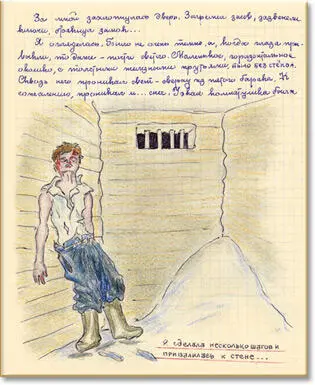 За мной захлопнулась дверь. Загремел засов, зазвенели
ключи, замок...
Я огляделась. Было не очень темно, а, когда глаза при-
выкли, то даже – почти светло. Маленькое, горизонтальное
окошко, с толстыми железными прутьями, было без стёкол.
Сквозь него проникал свет – сверху из барака. К
сожалению, проникал и... снег. Узкая комнатушка была
Я сделала несколько шагов и
привалилась к стене...